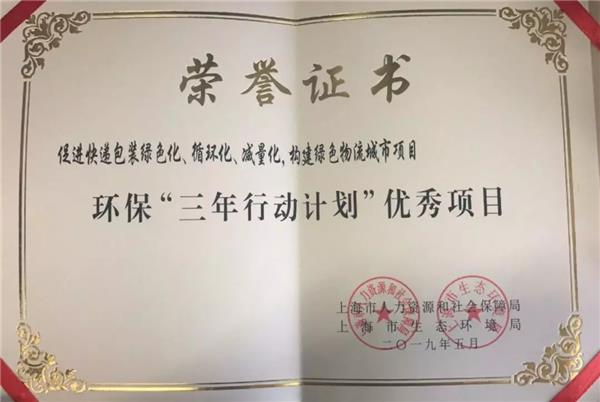 荣誉证书
促进快递包装绿色化、循环化、减量化,构建绿色物流城市项目
环保“三年行动计划”优秀项目
上海市人力资源和社会保障局
上海市生态环境局
二〇一九年五月